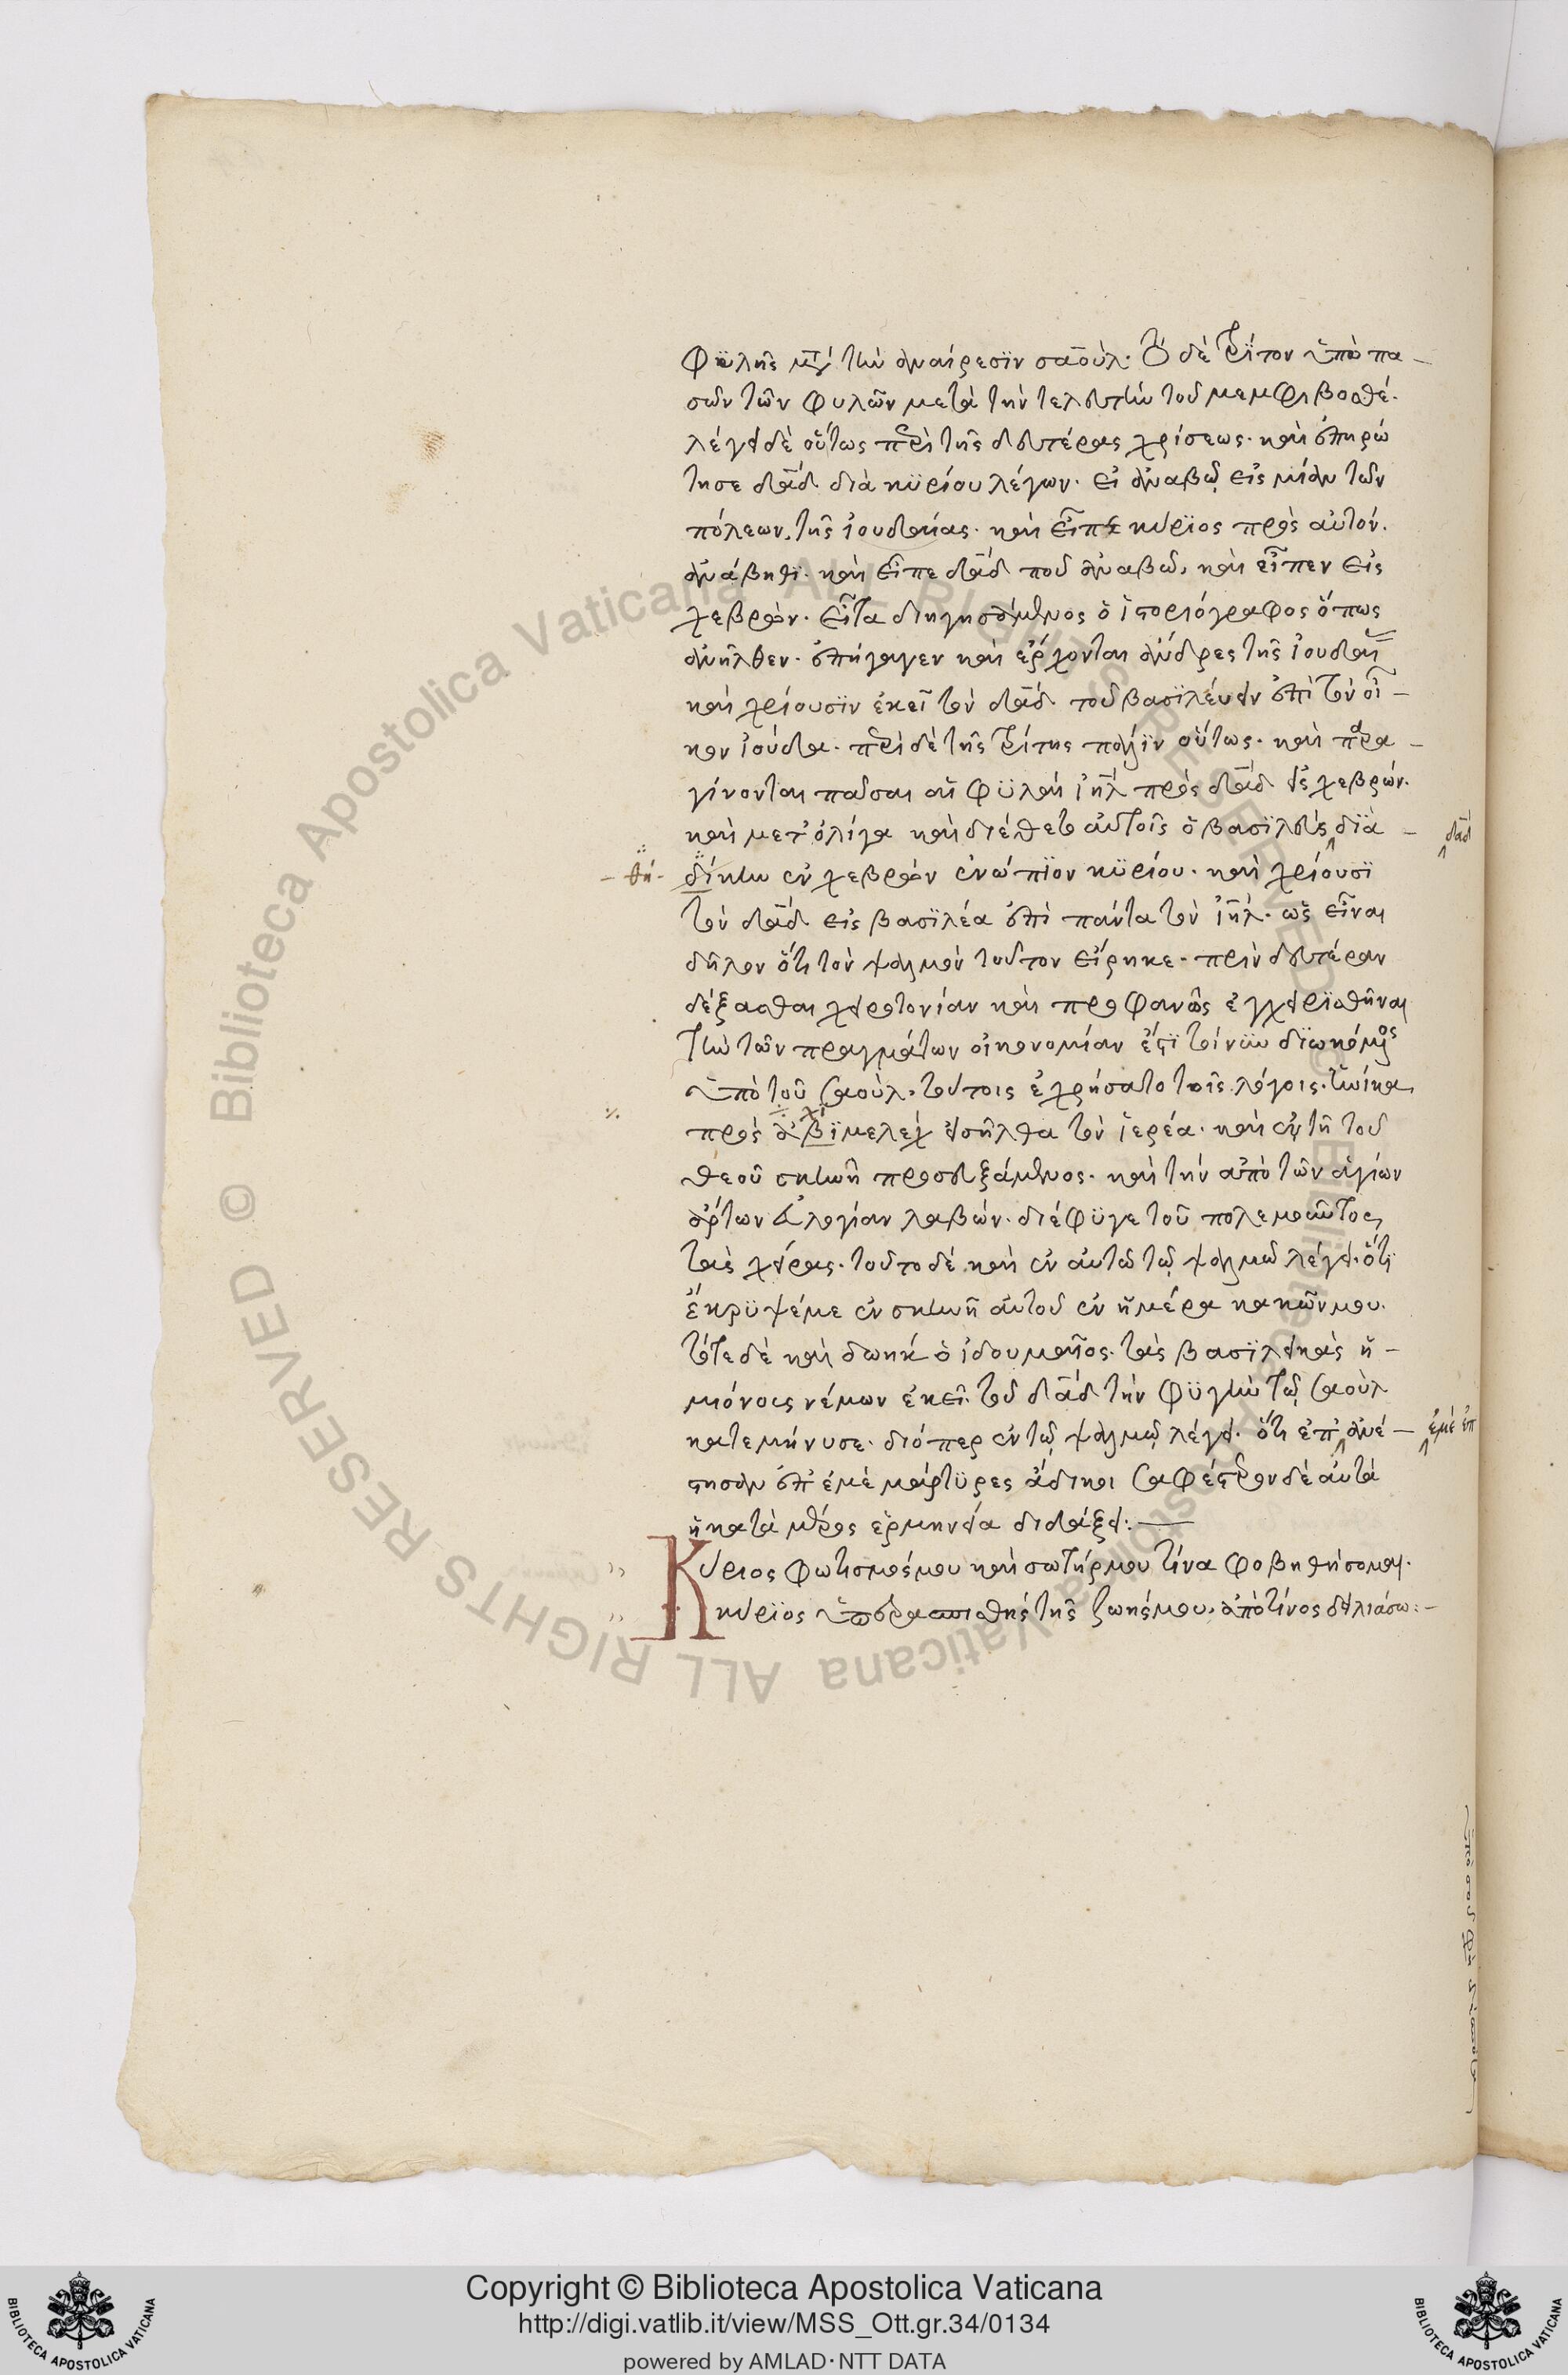 φϋλῆς μετὰ τὴν ἀναίρεσϊν σαούλ. τὸ δὲ τρίτον ὑπὸ πα-
σῶν τῶν φυλῶν μετὰ τὴν τελευτὴν τοῦ μεμφιβοσθέ.
λέγει δὲ οὕτως περὶ τῆς δευτέρας χρίσεως. καὶ ἐπηρώ
τησε δᾱδ διὰ κϋρίου λέγων. εἰ ἀναβῶ εἰς μίαν τῶν
πόλεων. τῆς ἰουδαίας. καὶ εἶπε κύρϊος πρὸς αὐτόν.
ἀνάβηθϊ. καὶ εἶπε δᾱδ ποῦ ἀναβῶ, καὶ εἶπεν εἰς
χεβρών. εἶτα διηγησάμενος ὁ ἱστοριόγραφος ὅπως
ἀνῆλθεν. ἐπήγαγεν καὶ ἔρχονται ἄνδρες τῆς ἰουδαί
καὶ χρίουσϊν ἐκεῖ τὸν δᾱδ τοῦ βασϊλεύειν ἐπὶ τὸν οἶ-
κον ἰούδα. περὶ δὲ τῆς τρίτης πάλϊν οὕτως. καὶ παρα-
γίνονται πᾶσαι αἱ φϋλαὶ ἰηλ πρὸς δᾱδ εἰς χεβρών.
καὶ μετ' ὀλίγα καὶ διέθετο αὐτοῖς ὁ βασϊλεὺς διὰ- δᾱδ
-θή- δίκην ἐν χεβρὼν ἐνώπϊον κϋρίου. καὶ χρίουσϊ
τὸν δᾱδ εἰς βασϊλέα ἐπὶ πάντα τὸν ἰηλ. ὡς εἶναι
δῆλον ὅτι τὸν ψαλμὸν τοῦτον εἴρηκε. πρὶν δευτέραν
δέξασθαι χειροτονίαν καὶ προφανῶς ἐγχειρϊσθῆναι
τὴν τῶν πραγμάτων οἰκονομίαν ἔτϊ τοίνυν δϊωκόμενος
ὑπὸ τοῦ σαούλ. τούτοις ἐχρήσατο τοῖς λόγοις. ἡνίκα
πρὸς ἀβϊμελεχ εἰσῆλθα τὸν ἱερέα. καὶ ἐν τῇ τοῦ χϊ
θεοῦ σκηνῇ προσευξάμενος. καὶ τὴν ἀπὸ τῶν ἁγίων
ἄρτων εὐλογίαν λαβών. διέφϋγε τοῦ πολεμοῦντος
τὰς χεῖρας. τοῦτο δὲ καὶ ἐν αὐτῷ τῷ ψαλμῷ λέγει. ὅτϊ
ἔκρϋψέ με ἐν σκηνῇ αὐτοῦ ἐν ἡμέρα κακῶν μου.
τότε δὲ καὶ δωὴκ ὁ ἰδουμαῖος. τὰς βασϊλεικὰς ἡ-
μιόνους νέμων ἐκεῖ. τοῦ δᾱδ τὴν φϋγὴν τῷ σαοὺλ
κατεμήνυσε. διόπερ ἐν τῷ ψαλμῷ λέγει. ὅτι ἐπ' ἀνέ- ἐμὲ ἐπ
στησαν ἐπ' ἐμὲ μάρτϋρες ἄδικοι σαφέστερον δὲ αὐτὰ
ἡ κατὰ μέρος ἑρμηνεία διδάξει:—
Κύριος φωτισμός μου καὶ σωτήρ μου τίνα φοβηθήσομαι.
κύρϊος ὑπερασπιστὴς τῆς ζωῆς μου. ἀπὸ τίνος δειλιάσω:-
Copyright © Biblioteca Apostolica Vaticana
http://digi.vatlib.it/view/MSS_Ott.gr.34/0134
powered by AMLAD·NTT DATA
BIBLIOTECA APOSTOLICA VATICANA
BIBLIOTECA APOSTOLICA VATICANA
© Biblioteca Apostolica Vaticana ALL RIGHTS RESERVED
© Biblioteca Apostolica Vaticana ALL RIGHTS RESERVED